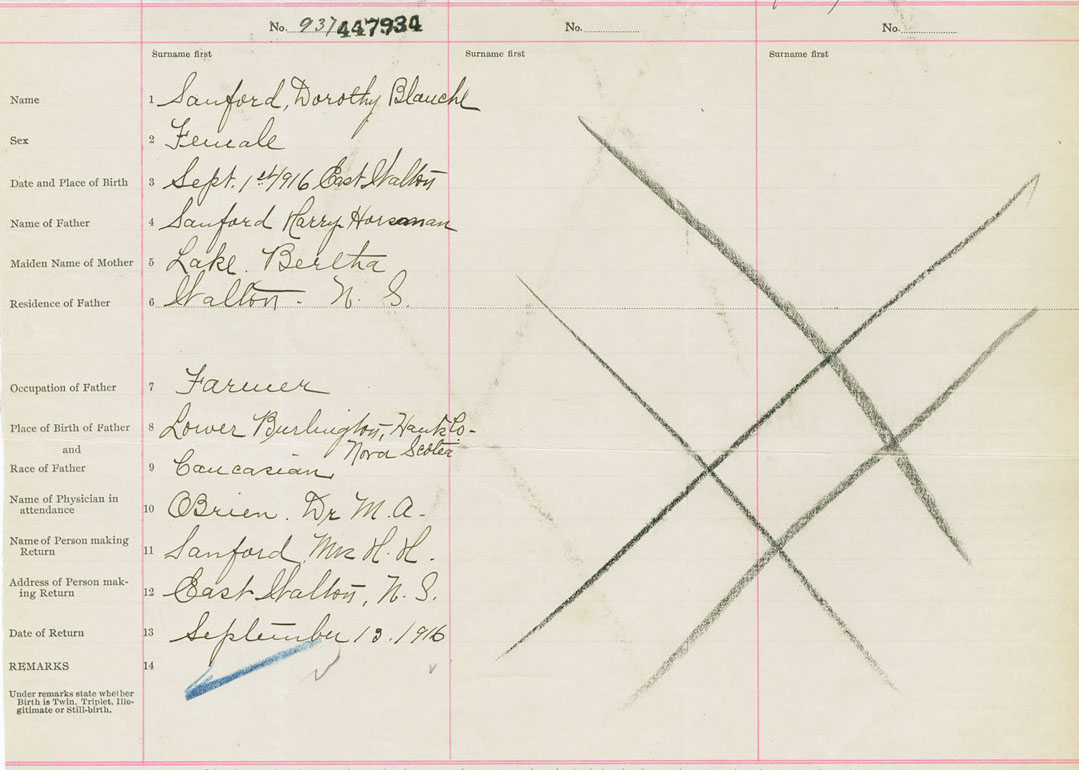 No. 937 447934 No. No.
Surname first Surname first Surname first
Name 1 Sanford, Dorothy Blanche
Sex 2 Female
Date and Place of Birth 3 Sept. 1st 1916 East Walton
Name of Father 4 Sanford Harry Horseman
Maiden Name of Mother 5 Lake. Bertha
Residence of Father 6 Walton - N. S.
Occupation of Father 7 Farmer
Place of Birth of Father 8 Lower Burlington, Hants Co-
and Nova Scotia
Race of Father 9 Caucasian
Name of Physician in
attendance 10 OBrien. Dr M. A.
Name of Person making
Return 11 Sanford, Mrs H. H.
Address of Person mak-
ing Return 12 East Walton, N. S.
Date of Return 13 September 13. 1916
REMARKS 14
Under remarks state whether
Birth is Twin, Triplet, Ille-
gitimate or Still-birth.